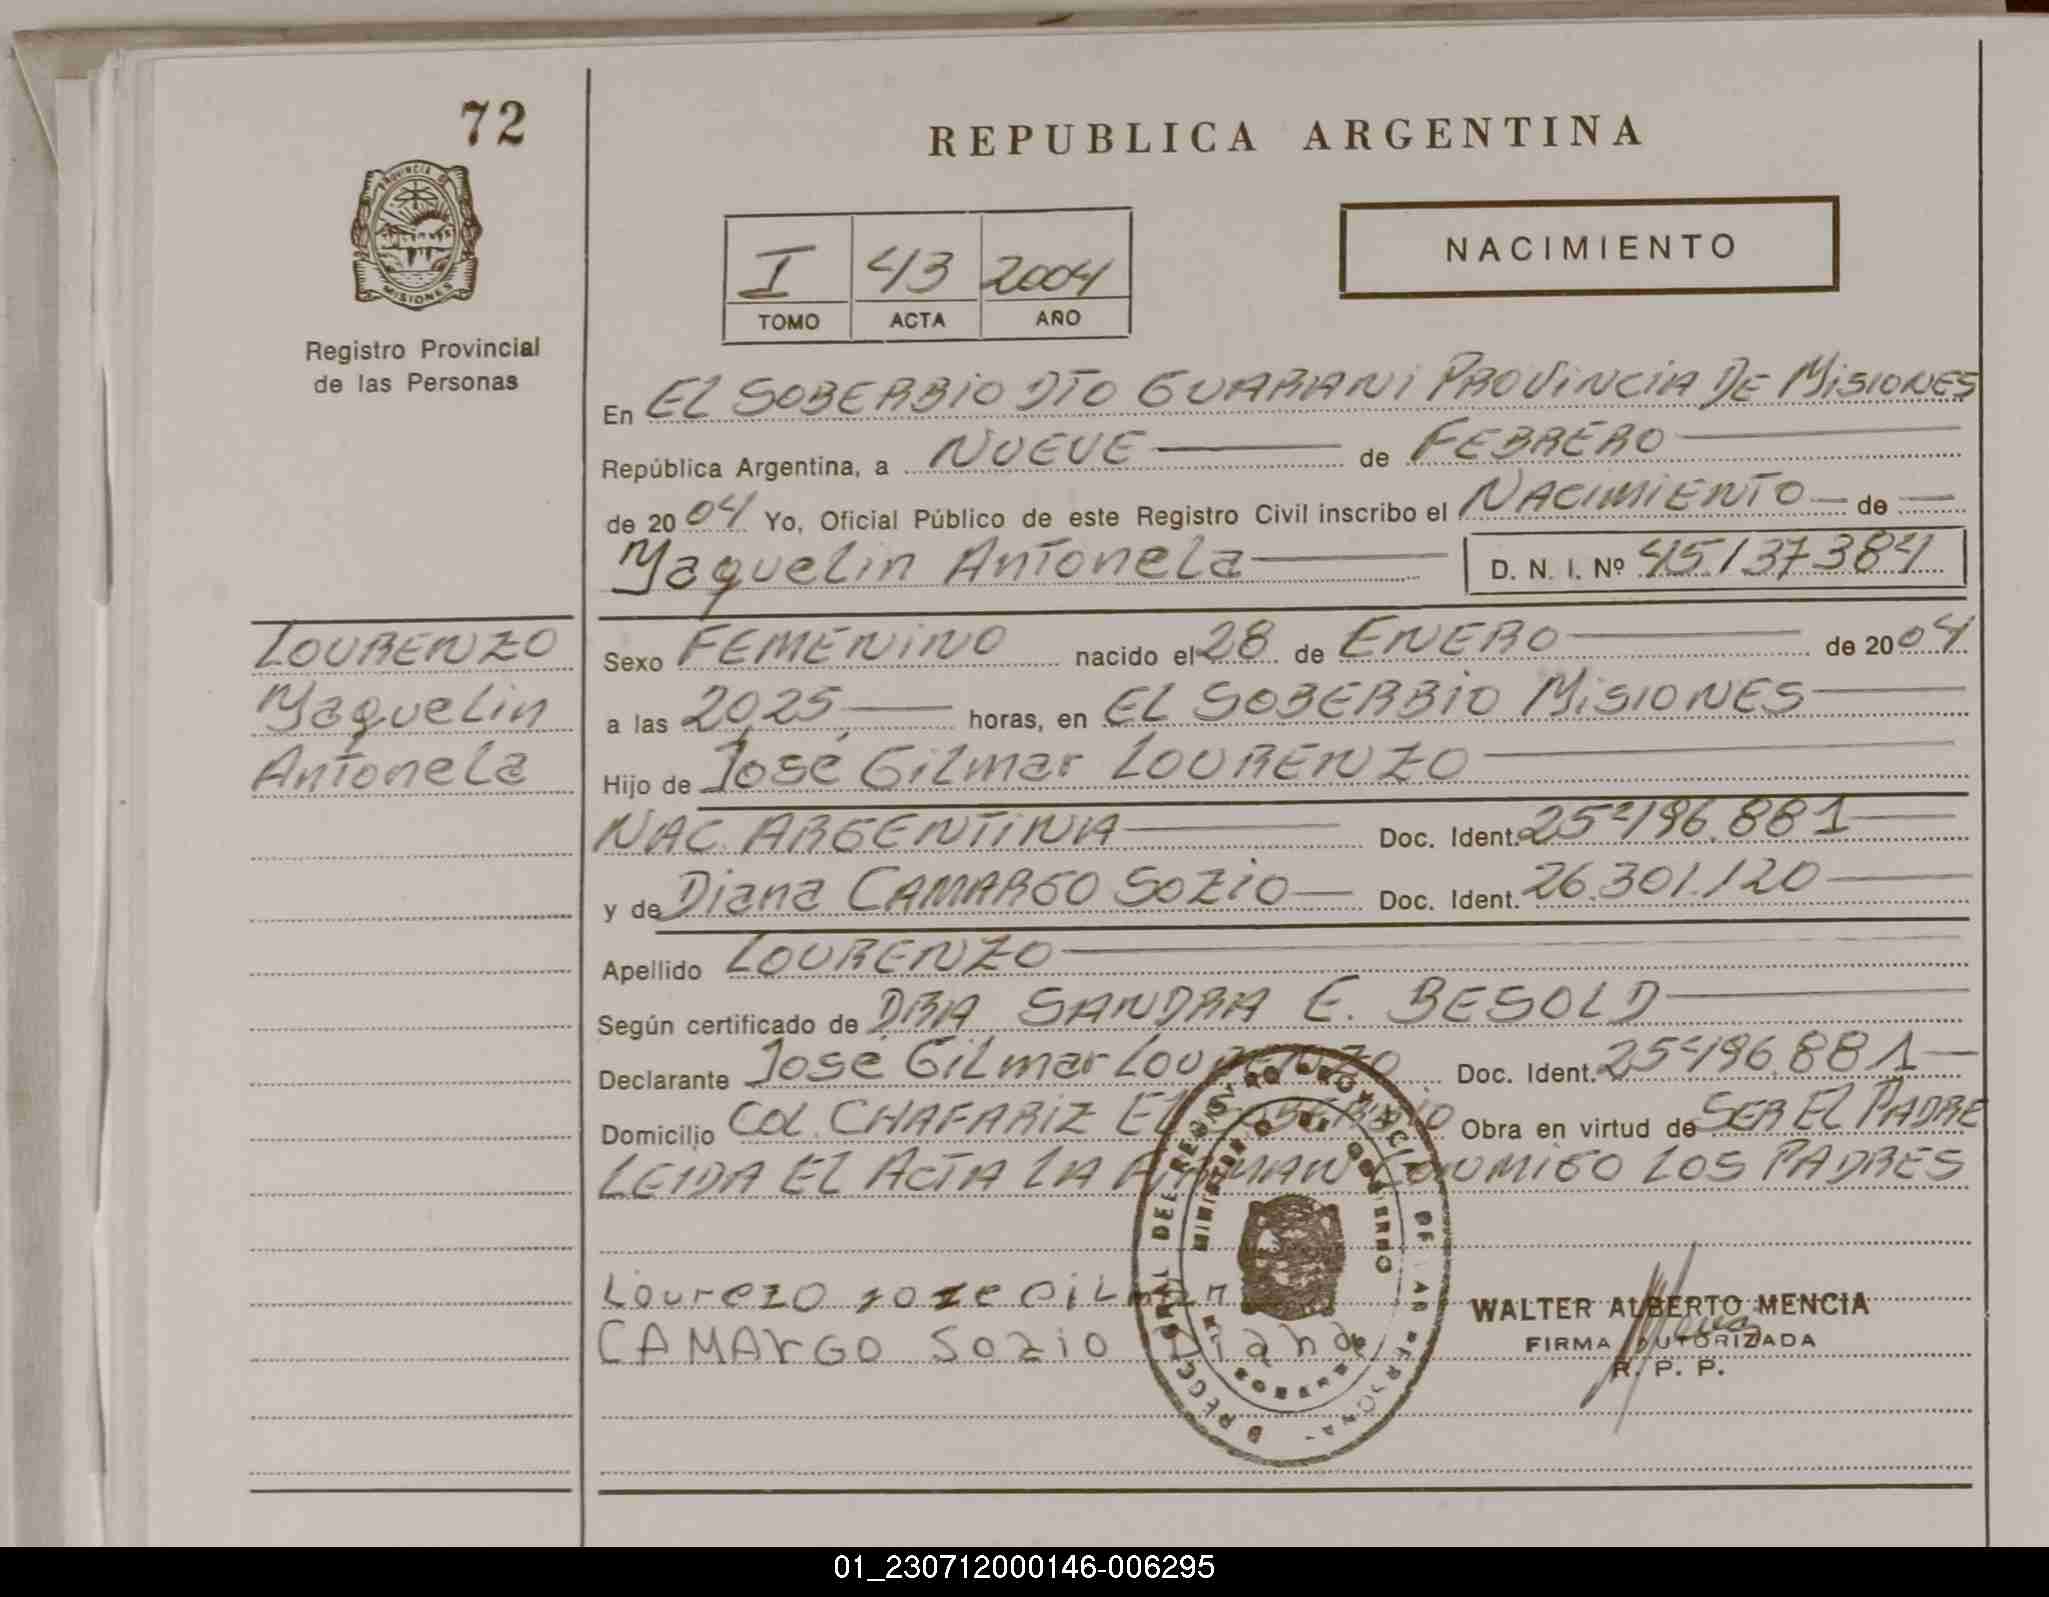 72
REPUBLICA ARGENTINA
NACIMIENTO
I 43 2004
TOMO ACTA AÑO
PROVINCIA DE
MISIONES
Registro Provincial
de las Personas
En EL SOBERBIO DTO GUARANI PROVINCIA DE MISIONES
República Argentina, a NUEVE de FEBRERO
de 2004 Yo, Oficial Público de este Registro Civil inscribo el NACIMIENTO de
Yaquelin Antonela D. N. I. Nº 45137384
LOURENZO
Yaquelin
Antonela
Sexo FEMENINO nacido el 28 de ENERO de 2004
a las 20,25, horas, en EL SOBERBIO MISIONES
Hijo de José Gilmar LOURENZO
NAC. ARGENTINA Doc. Ident. 25.496.881
y de Diana CAMARGO SOZIO Doc. Ident. 26.301.120
Apellido LOURENZO
Según certificado de DRA SANDRA E. BESOLD
Declarante José Gilmar LOURENZO Doc. Ident. 25.496.881
Domicilio COL. CHAFARIZ EL SOBERBIO Obra en virtud de SER EL PADRE
LEIDA EL ACTA LA FIRMAN CONMIGO LOS PADRES
Lourezo Joze Gilmar
CAMArGO Sozio Diana
WALTER ALBERTO MENCIA
FIRMA AUTORIZADA
R. P. P.
MINISTERIO DE GOBIERNO
01_230712000146-006295